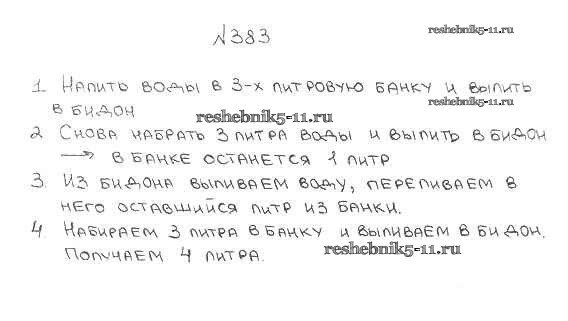 №383
reshebnik5-11.ru
1 Налить воды в 3-х литровую банку и вылить
reshebnik5-11.ru
в бидон
reshebnik5-11.ru
2 Снова набрать 3 литра воды и вылить в бидон
→ в банке останется 1 литр
3. Из бидона выливаем воду, переливаем в
него оставшийся литр из банки.
4 Набираем 3 литра в банку и выливаем в бидон.
reshebnik5-11.ru
Получаем 4 литра.